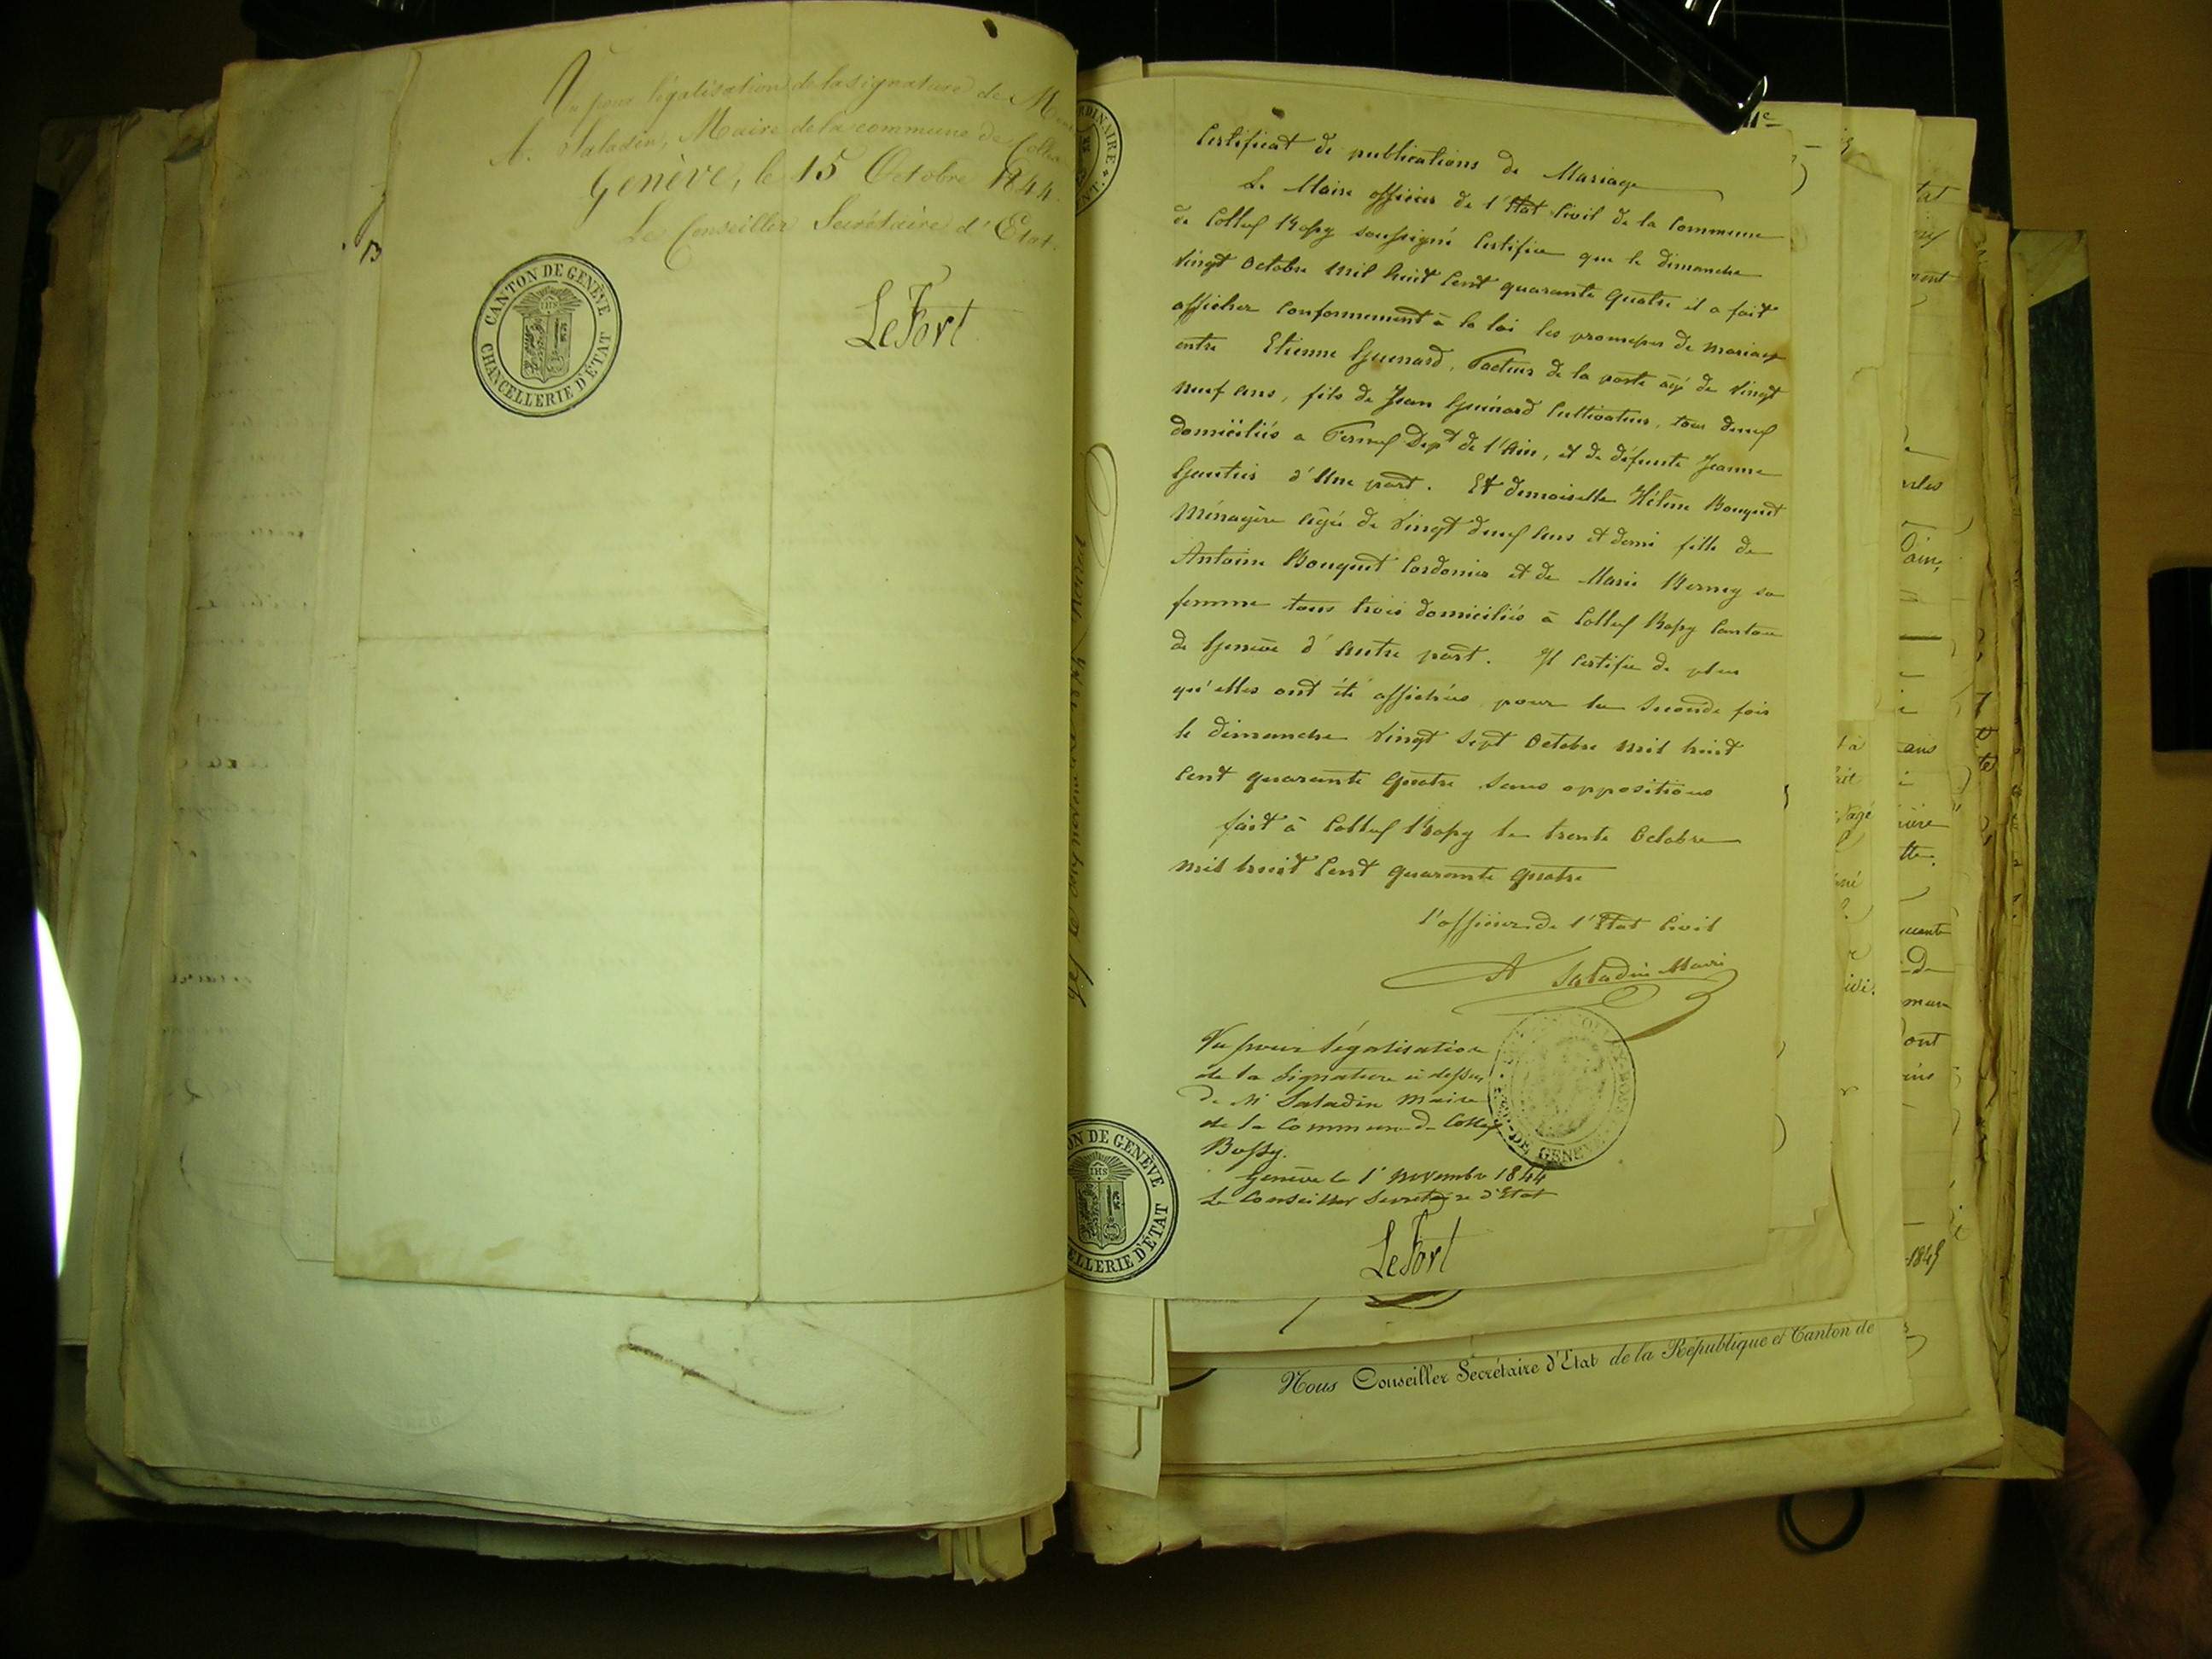 Vu pour légalisation de la signature de M
A. Saladin, Maire de la commune de Collex
Genève, le 15 Octobre 1844.
Le Conseiller Secrétaire d'Etat.
LeFort
CANTON DE GENÈVE
CHANCELLERIE D'ÉTAT
Certificat de publications de Mariage
Le Maire officier de l'Etat Civil de la Commune
de Collex Bossy soussigné Certifie que le dimanche
Vingt Octobre mil huit Cent quarante Quatre il a fait
afficher Conformement à la loi les promesses de mariage
entre Etienne Guenard, Facteur de la poste âgé de Vingt
neuf ans, fils de Jean Guénard Cultivateur, tous deux
domiciliés a Fernex Dept de l'Ain, et de défunte Jeanne
Gautier d'Une part. Et demoiselle Hélène Bouquet
Ménagère âgée de Vingt deux ans et demi fille de
Antoine Bouquet Cordonier et de Marie Berney sa
femme tous trois domiciliés à Collex Bossy Canton
de Genève d'Autre part. Il Certifie de plus
qu'elles ont été affichées pour la Seconde fois
le dimanche Vingt Sept Octobre mil huit
Cent quarante Quatre Sans oppositions
fait à Collex Bossy le trente Octobre
mil huit Cent quarante Quatre
l'officier de l'Etat Civil
A Saladin Maire
Vu pour légalisation
de la Signature ci dessus
de Mr Saladin Maire
de la Commune de Collex
Bossy.
Genève le 1r Novembre 1844
Le Conseiller Secretaire d'Etat
LeFort
DE GENÈVE
ON DE GENÈVE
ELLERIE D'ÉTAT
Nous Conseiller Secrétaire d'Etat de la République et Canton de
1845